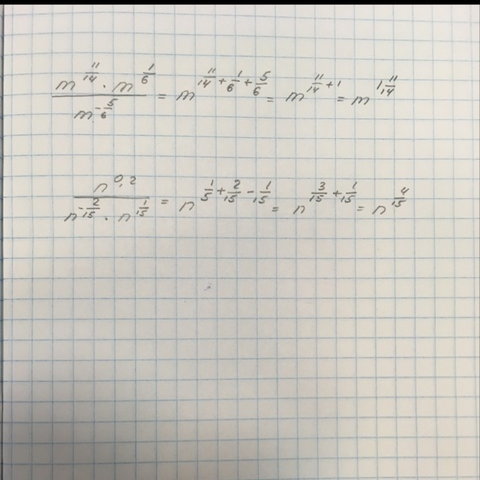 m^{11/14} · m^{1/6} / m^{-5/6} = m^{11/14 + 1/6 + 5/6} = m^{11/14 + 1} = m^{1 11/14}
n^{0,2} / n^{-2/15} · n^{1/15} = n^{1/5 + 2/15 - 1/15} = n^{3/15 + 1/15} = n^{4/15}